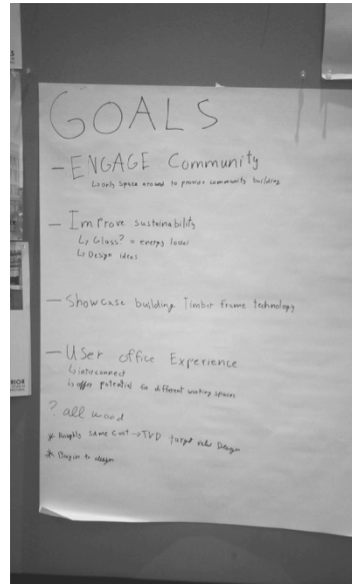 GOALS
- ENGAGE Community
↳ only space around to provide community building
- Improve sustainability
↳ Glass? = energy
↳ Design ideas
- Showcase building Timber frame technology
- User office Experience
↳ interconnect
↳ offer potential for different working spaces
? all wood
* Roughly same cost → TVD target value Design
* to design
RIOR